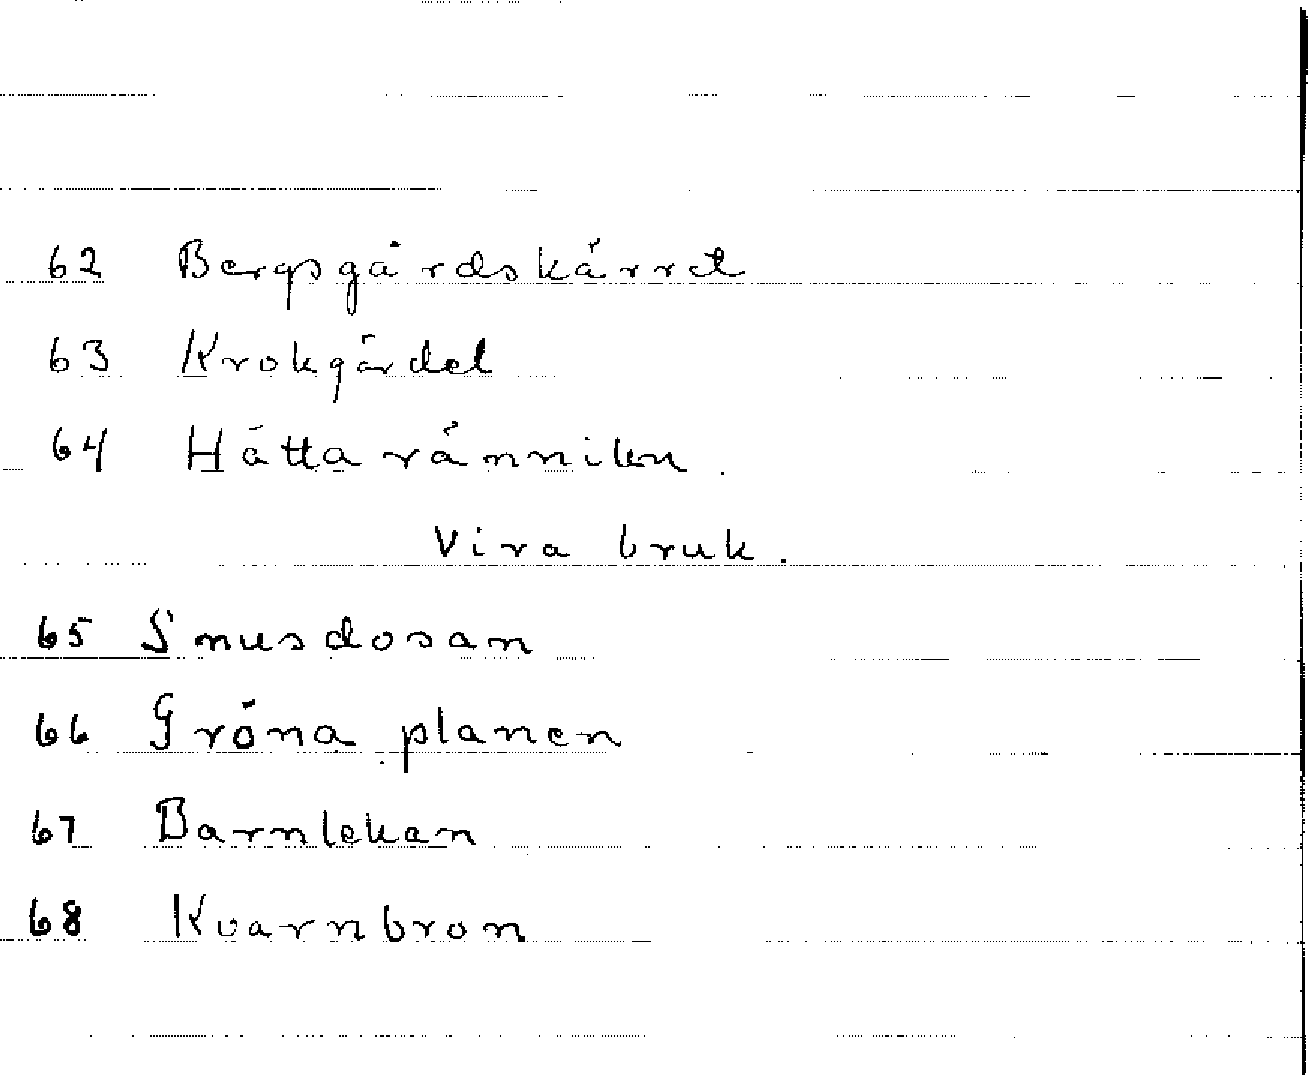 62 Bergsgårdskärret
63 Krokgärdet
64 Hätta
Vira bruk.
65 Snusdosan
66 Gröna planen
67 Barnlekan
68 Kvarnbron